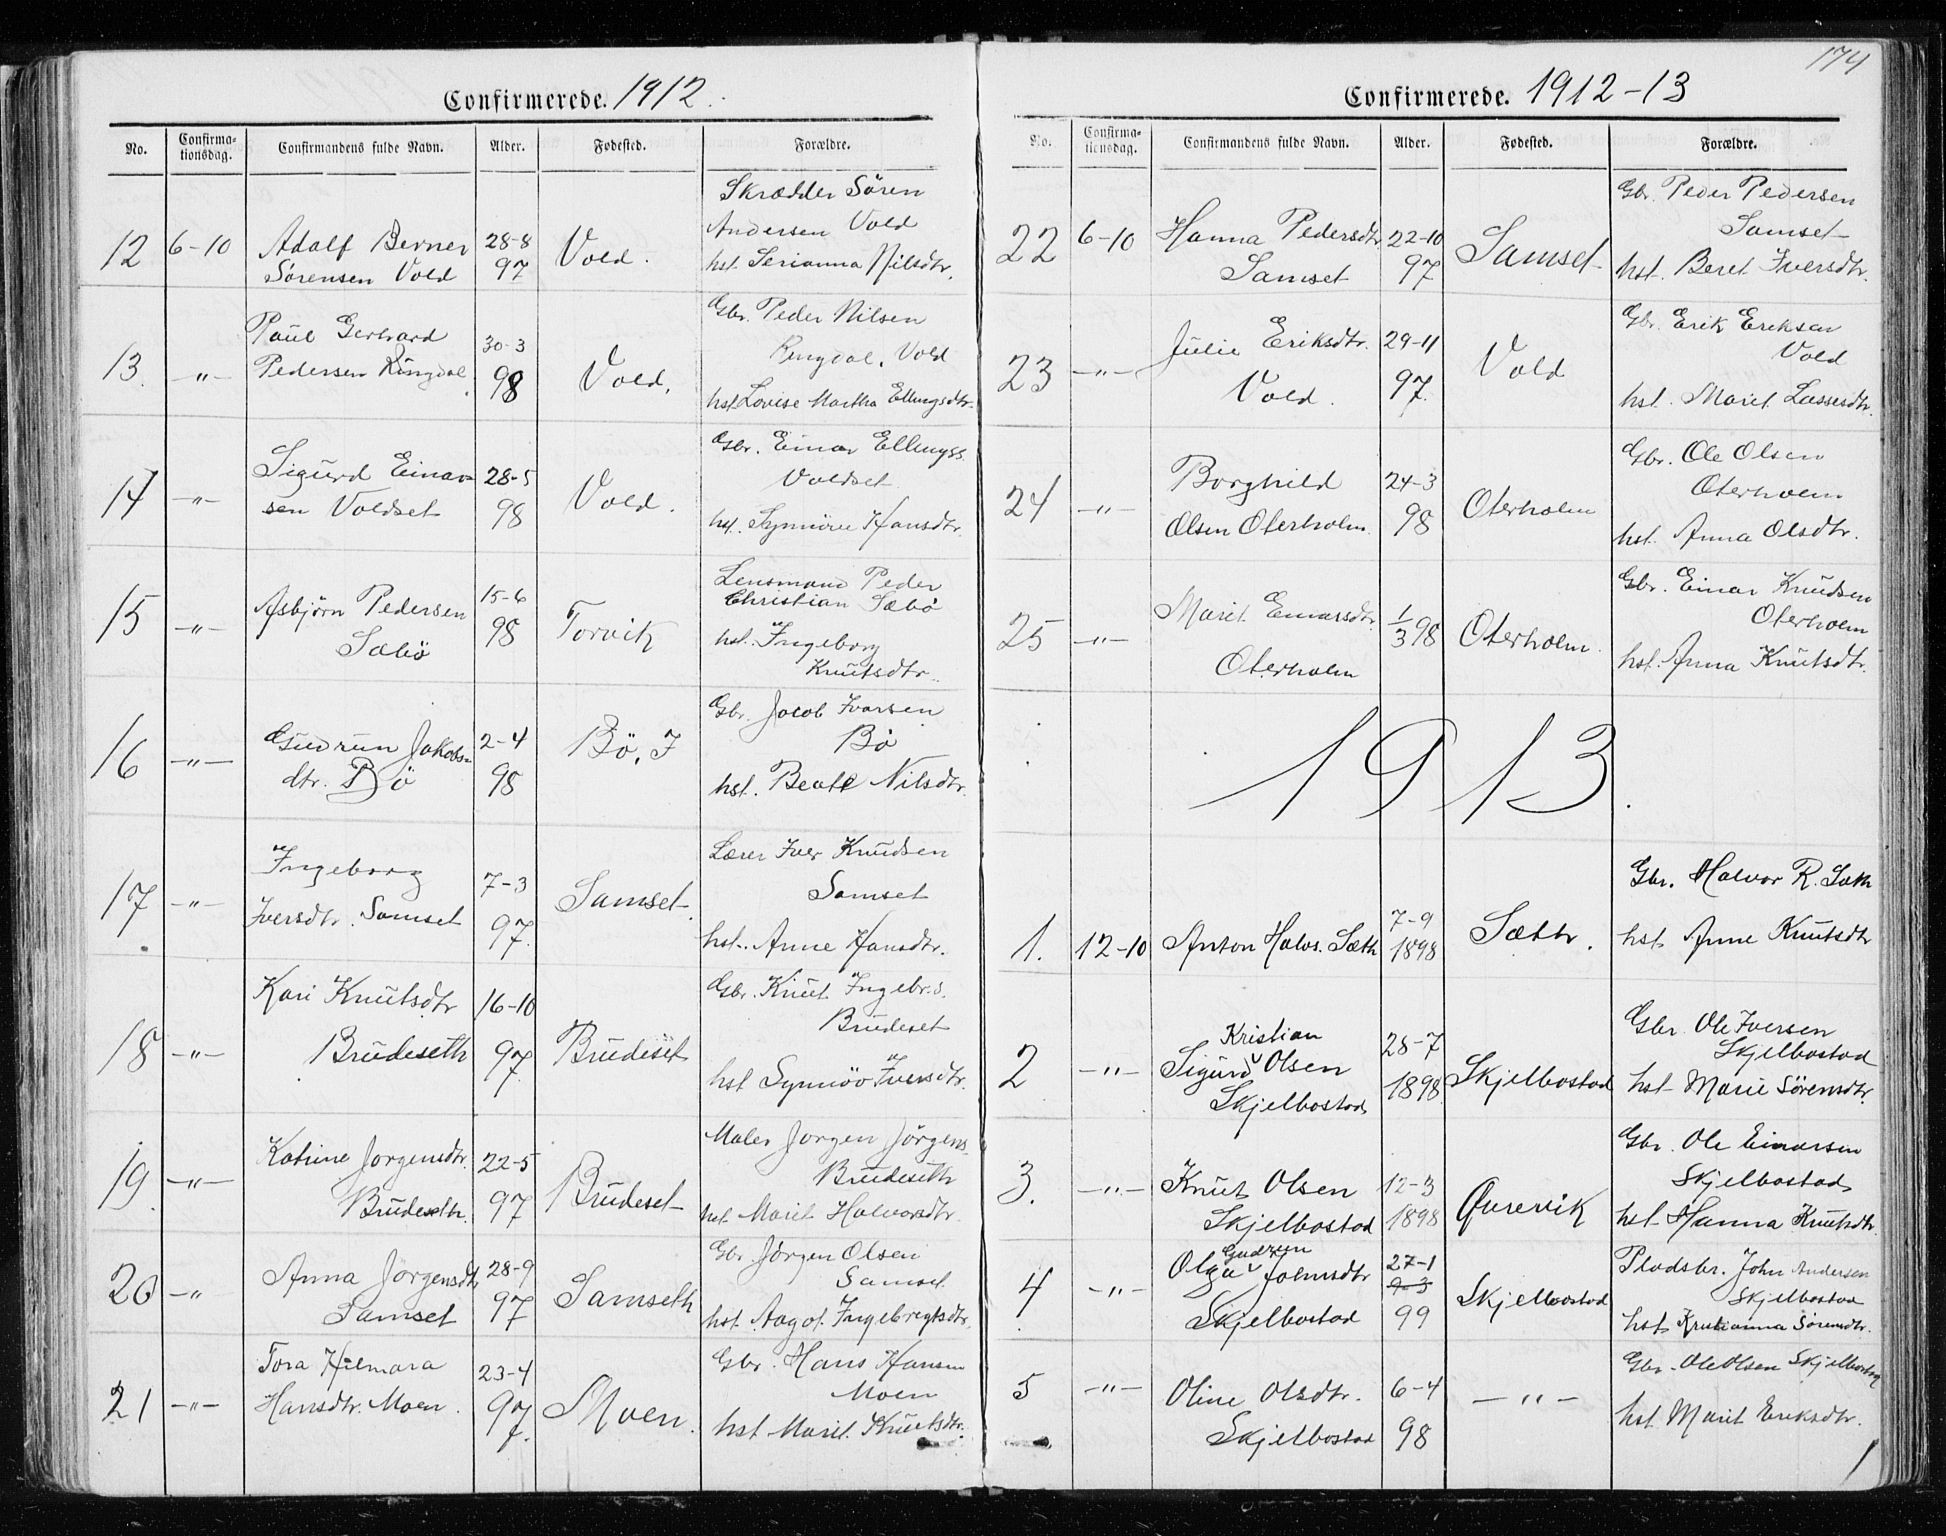 Confirmerede. 1912.
No. Confirma-tionsdag. Confirmandens fulde Navn. Alder. Fødested. Forældre.
12 6-10 Adolf Berner Sörensen Vold 28-8 97 Vold. Skrædder Sören Andersen Vold hst. Serianna Nilsdtr.
13. -"- Paul Gerhard Pedersen Ringdal. 30-3 98 Vold. Gbr. Peder Nilsen Ringdal, Vold hst. Lovise Martha Ellingsdtr.
14 -"- Sigurd Einarsen Voldset 28-5 98 Vold. Gbr. Einar Ellingss. Voldset hst. Synnöve Hansdtr.
15 -"- Asbjörn Pedersen Sæbö 15-6 98 Torvik Lensmand Peder Christian Sæbö hst. Ingeborg Knutsdtr.
16 -"- Gudrun Jakobs-dtr. Bö 2-4 98 Bö, I Gbr. Jacob Ivarsen Bö hst. Beate Nilsdtr.
17 -"- Ingeborg Iversdtr. Samset 7-3 97. Samset. Lærer Iver Knudsen Samset hst. Anne Hansdtr.
18 -"- Kari Knutsdtr Brudeseth 16-10 97 Brudeset Gbr. Knut Ingebr.s. Brudeset hst Synnöv Iversdtr.
19. -"- Katrine Jorgensdtr. Brudeseth. 22-5 97 Brudeset Maler Jorgen Jörgens. Brudeseth hst Marit Halvorsdtr.
20 -"- Anna Jorgensdtr Samset 28-9 97 Samseth Gbr Jørgen Olsen Samset hst. Aagot Ingebregtsdtr.
21 -"- Tora Hilmara Hansdtr. Moen. 23-4 97. Moen. Gbr. Hans Hansen Moen hst Marit Knutsdtr.
174
Confirmerede. 1912-13
No. Confirma-tionsdag. Confirmandens fulde Navn. Alder. Fødested. Forældre.
22 6-10 Hanna Pedersdtr Samset 22-10 97 Samset Gbr. Peder Pedersen Samset hst. Beret Iversdtr.
23 -"- Julie Eriksdtr. Vold. 29-11 97. Vold Gbr. Erik Eriksen Vold hst. Marit Lassesdtr.
24 -"- Borghild Olsen Oterholm 24-3 98 Oterholm Gbr. Ole Olsen Oterholm hst. Anna Olsdtr.
25 -"- Marit Einarsdtr. Oterholm 1/3 98 Oterholm. Gbr. Einar Knudsen Oterholm hst. Anna Knutsdtr.
1913.
1. 12-10 Anton Halvs. Sæth 7-9 1898 Sæthr. Gbr. Halvor R. Sæth hst Anne Knutsdtr
2 -"- Sigurd Kristian Olsen Skjelbostad 28-7 1898 Skjelbostad Gbr. Ole Iversen Skjelbostad hst Marie Sörensdtr.
3. -"- Knut Olsen Skjelbostad 12-3 1898 Qvervik Gbr. Ole Einarsen Skjelbostad hst Hanna Knutsdtr
4 -"- Olga Gudrun Johnsdtr Skjelbostad 27-1 9-3 99 Skjelbostad Pladsbr. John Andersen Skjelbostad hst Kristianna Sörensdtr.
5 -"- Oline Olsdtr. Skjelbostad 6-4 98 -"- Gbr. Ole Olsen Skjelbostad hst. Marit Eriksdtr.